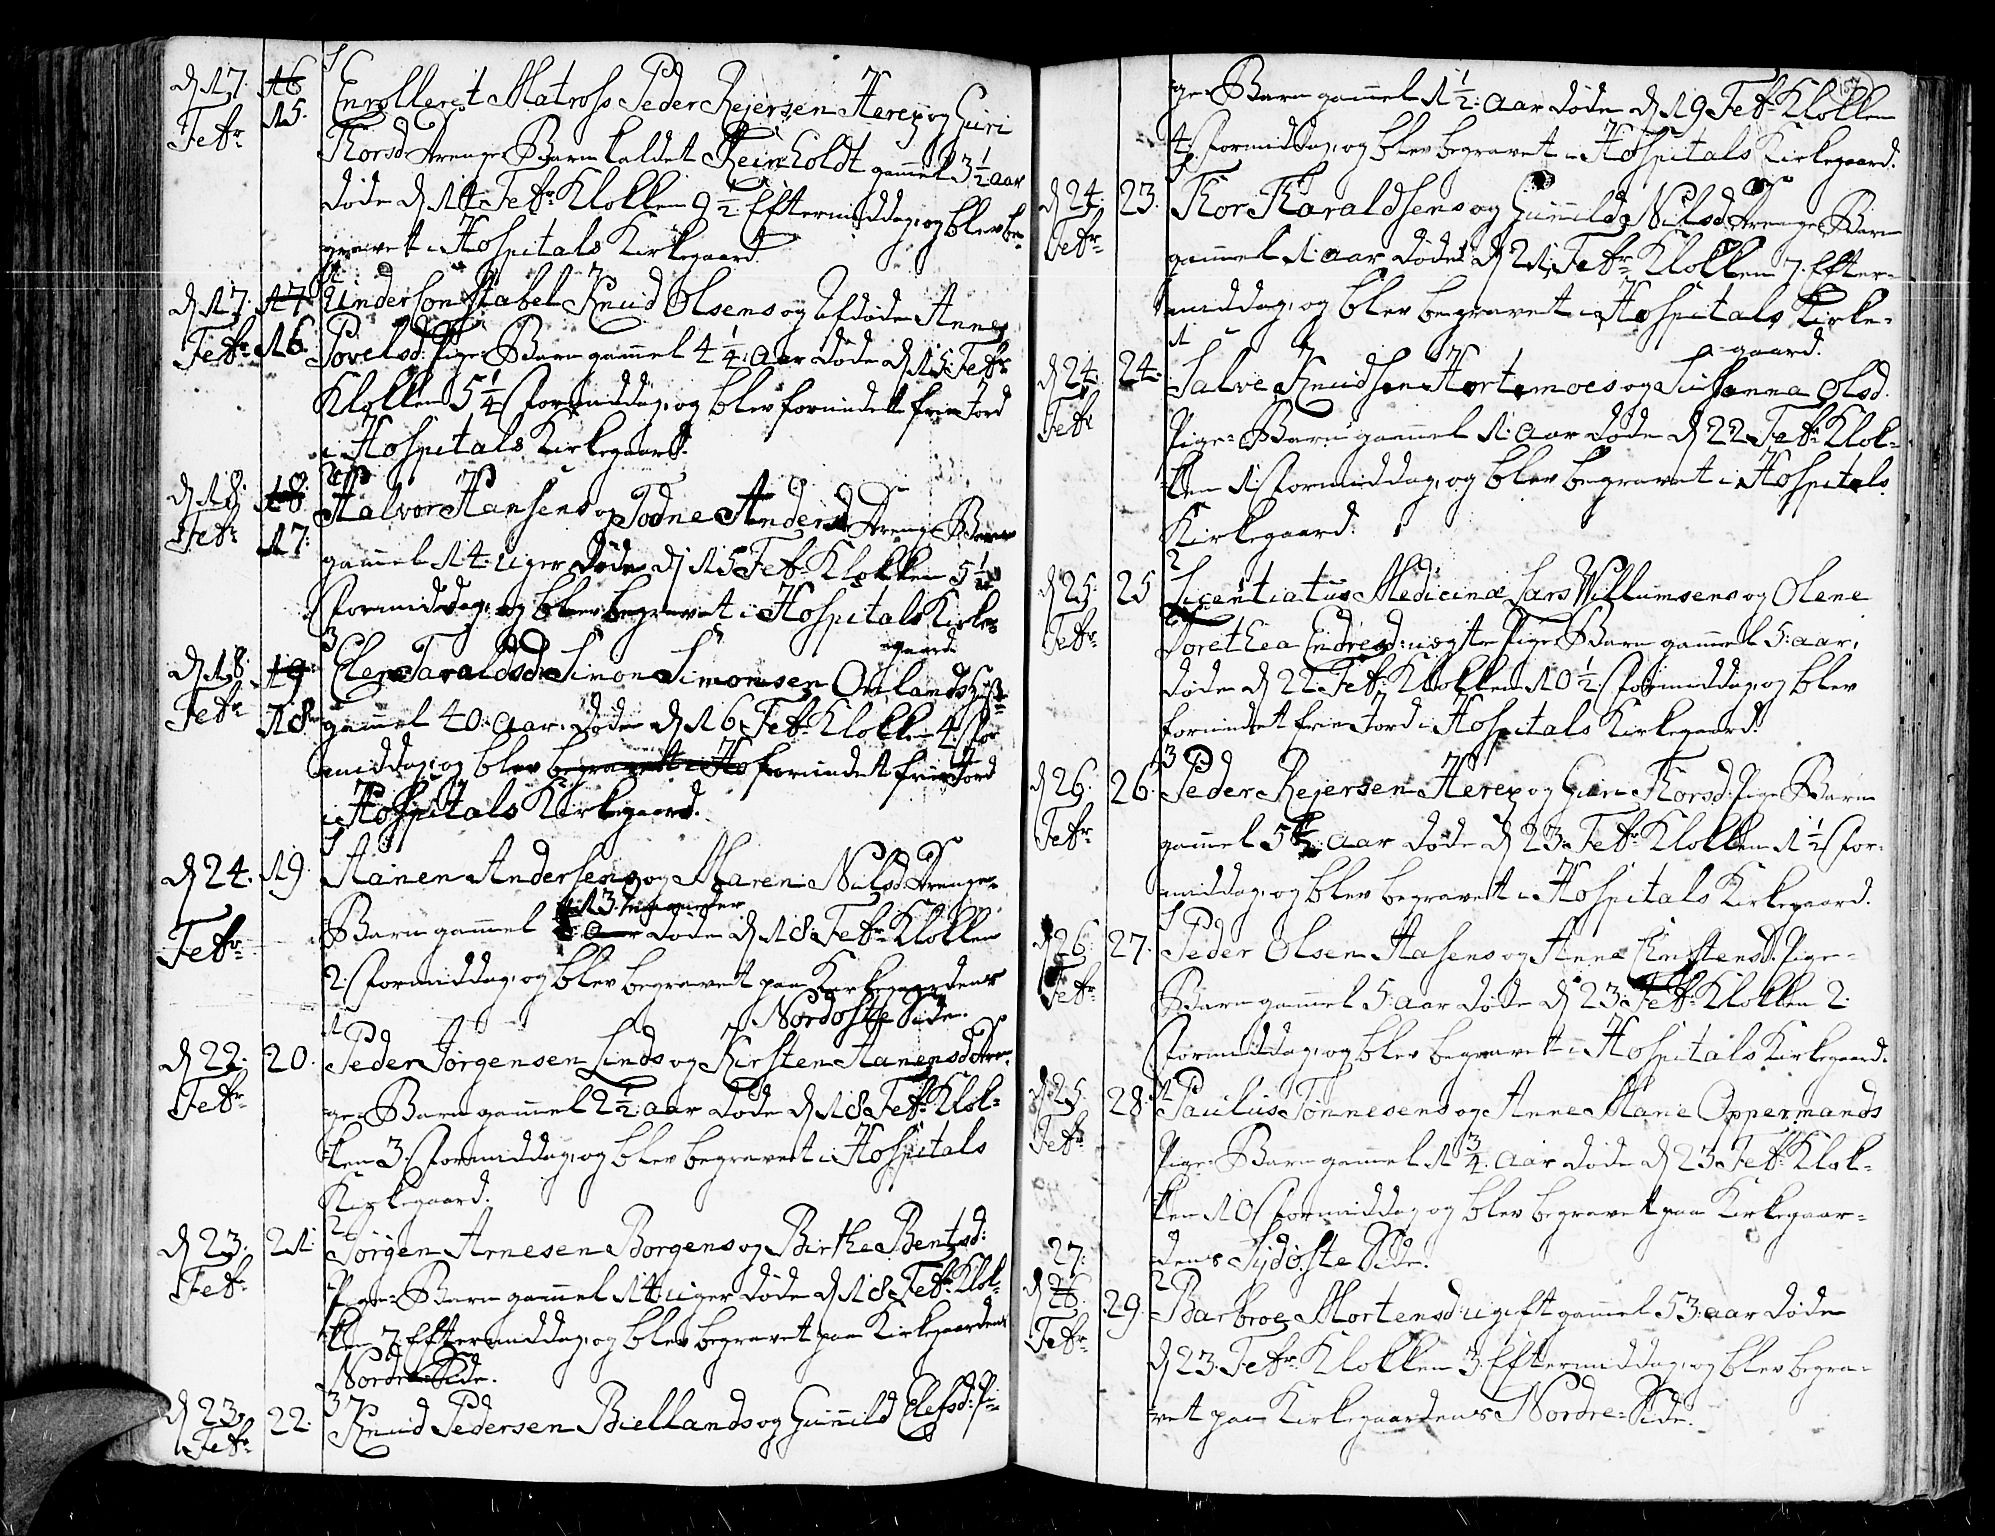 d 17. 16 Enrolleret Matross Peder Rejersen Herey og Guri
Febr 15. Thorsd. Drenge-Barn kaldet Reinholdt gammel 3 1/2 aar
døde d 14 Febr Klokken 9 1/2 Eftermiddag, og blev be-
gravet i Hospitals Kirkegaard.
d 17. 17 Under Constabel Knud Olsens og Afdøde Anne
Febr 16. Povelsd: Pige-Barn gammel 4 1/4 aar døde d 15 Febr
Klokken 5 1/4 Formiddag, og blev forundet frie Jord
i Hospitals Kirkegaard.
d 18. 18 Halvor Hansens og Todne Andersd Drenge-Barn
Febr 17: gammel 14: uger døde d 15 Febr Klokken 5 1/2
Formiddag, og blev begravet i Hospitals Kirke-
gaard
d 18. 19 Elen Taraldsd Simon Simonsen Omlands
Febr 18 gammel 40. aar. døde d 16 Febr Klokken 4 For
middag, og blev begravet i Ho forundet frie Jord
i Hospitals Kirkegaard.
d 24. 19. Aanen Andersens og Maren Nilsd Drenge-
13 maaneder
Febr Barn gammel aar døde d 18 Febr Klokken
2 Formiddag, og blev begravet paa Kirkegaardens
Nordøste Side.
d 22. 20. Peder Jørgensen Linds og Kirsten Aanensd Dren-
Febr ge-Barn gammel 2 1/2 aar døde d 18 Febr Klok-
ken 3. Formiddag, og blev begravet i Hospitals
Kirkegaard.
2
d 23. 21. Jørgen Arnesen Borgens og Birthe Bentsd:
Febr Pige-Barn gammel 14 uger døde d 18 Febr Klok-
ken 7. Eftermiddag, og blev begravet paa Kirkegaardens
Nordre Side.
3
d 23. 22. Knud Pedersen Biellands og Gunnild Elefsd: Pi-
Febr
157
ge-Barn gammel 1 1/2 aar døde d 19 Febr Klokken
4 Formiddag, og blev begravet i Hospitals Kirkegaard.
d 24. 23. Thor Haraldsens og Gunnild Nilsd Drenge-Barn
Febr gammel 1 aar døde d 21 Febr Klokken 7. Efter-
middag, og blev begravet i Hospitals Kirke-
gaard.
1
d 24. 24. Salve Knudsen Hortemoes og Susanna Olsd.
Febr Pige-Barn gammel 1. aar døde d 22 Febr Klok-
ken 1 Formiddag, og blev begravet i Hospitals
Kirkegaard.
2
d 25. 25 Licentiatus Medicinæ Lars Willumsens og Olene
Febr Dorethea Endresd: uægte Pige-Barn gammel 5. aar,
døde d 22 Febr Klokken 10 1/2 Formiddag, og blev
forundet frie Jord i Hospitals Kirkegaard.
3
d 26. 26. Peder Rejersen Herey og Guri Thorsd: Pige-Barn
Febr gammel 5 1/2 aar døde d 23. Febr Klokken 1 1/2 For-
middag, og blev begravet i Hospitals Kirkegaard.
d 26. 27. Peder Olsen Aasens og Anne Christensd: Pige-
Febr Barn gammel 5. aar døde d 23. Febr Klokken 2.
Formiddag, og blev begravet i Hospitals Kirkegaard.
d 25. 28. Paulus Tønnesens og Anne Marie Oppermands
Febr Pige-Barn gammel 1 3/4 aar døde d 23 Febr Klok-
ken 10 Formiddag, og blev begravet paa Kirkegaar-
dens Sydøste Side.
27. 2
d 26 29. Barbroe Mortensd: ugift gammel 53. aar døde
Febr d 23. Febr Klokken 3. Eftermiddag, og blev begra-
vet paa Kirkegaardens Nordre Side.